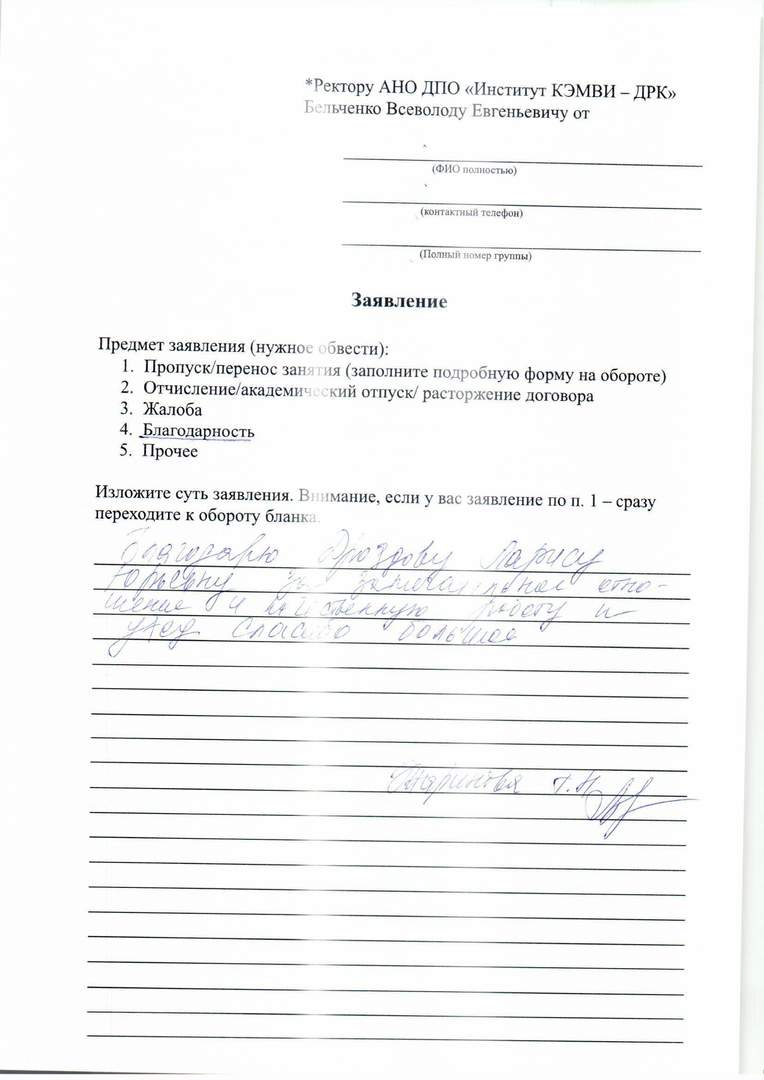 *Ректору АНО ДПО «Институт КЭМВИ – ДРК»
Бельченко Всеволоду Евгеньевичу от
(ФИО полностью)
(контактный телефон)
(Полный номер группы)
Заявление
Предмет заявления (нужное обвести):
1. Пропуск/перенос занятия (заполните подробную форму на обороте)
2. Отчисление/академический отпуск/ расторжение договора
3. Жалоба
4. Благодарность
5. Прочее
Изложите суть заявления. Внимание, если у вас заявление по п. 1 – сразу
переходите к обороту бланка.
Благодарю Дроздову Ларису
Юрьевну за замечательное отно-
шение и качественную работу и
уход Спасибо большое
Т.Н